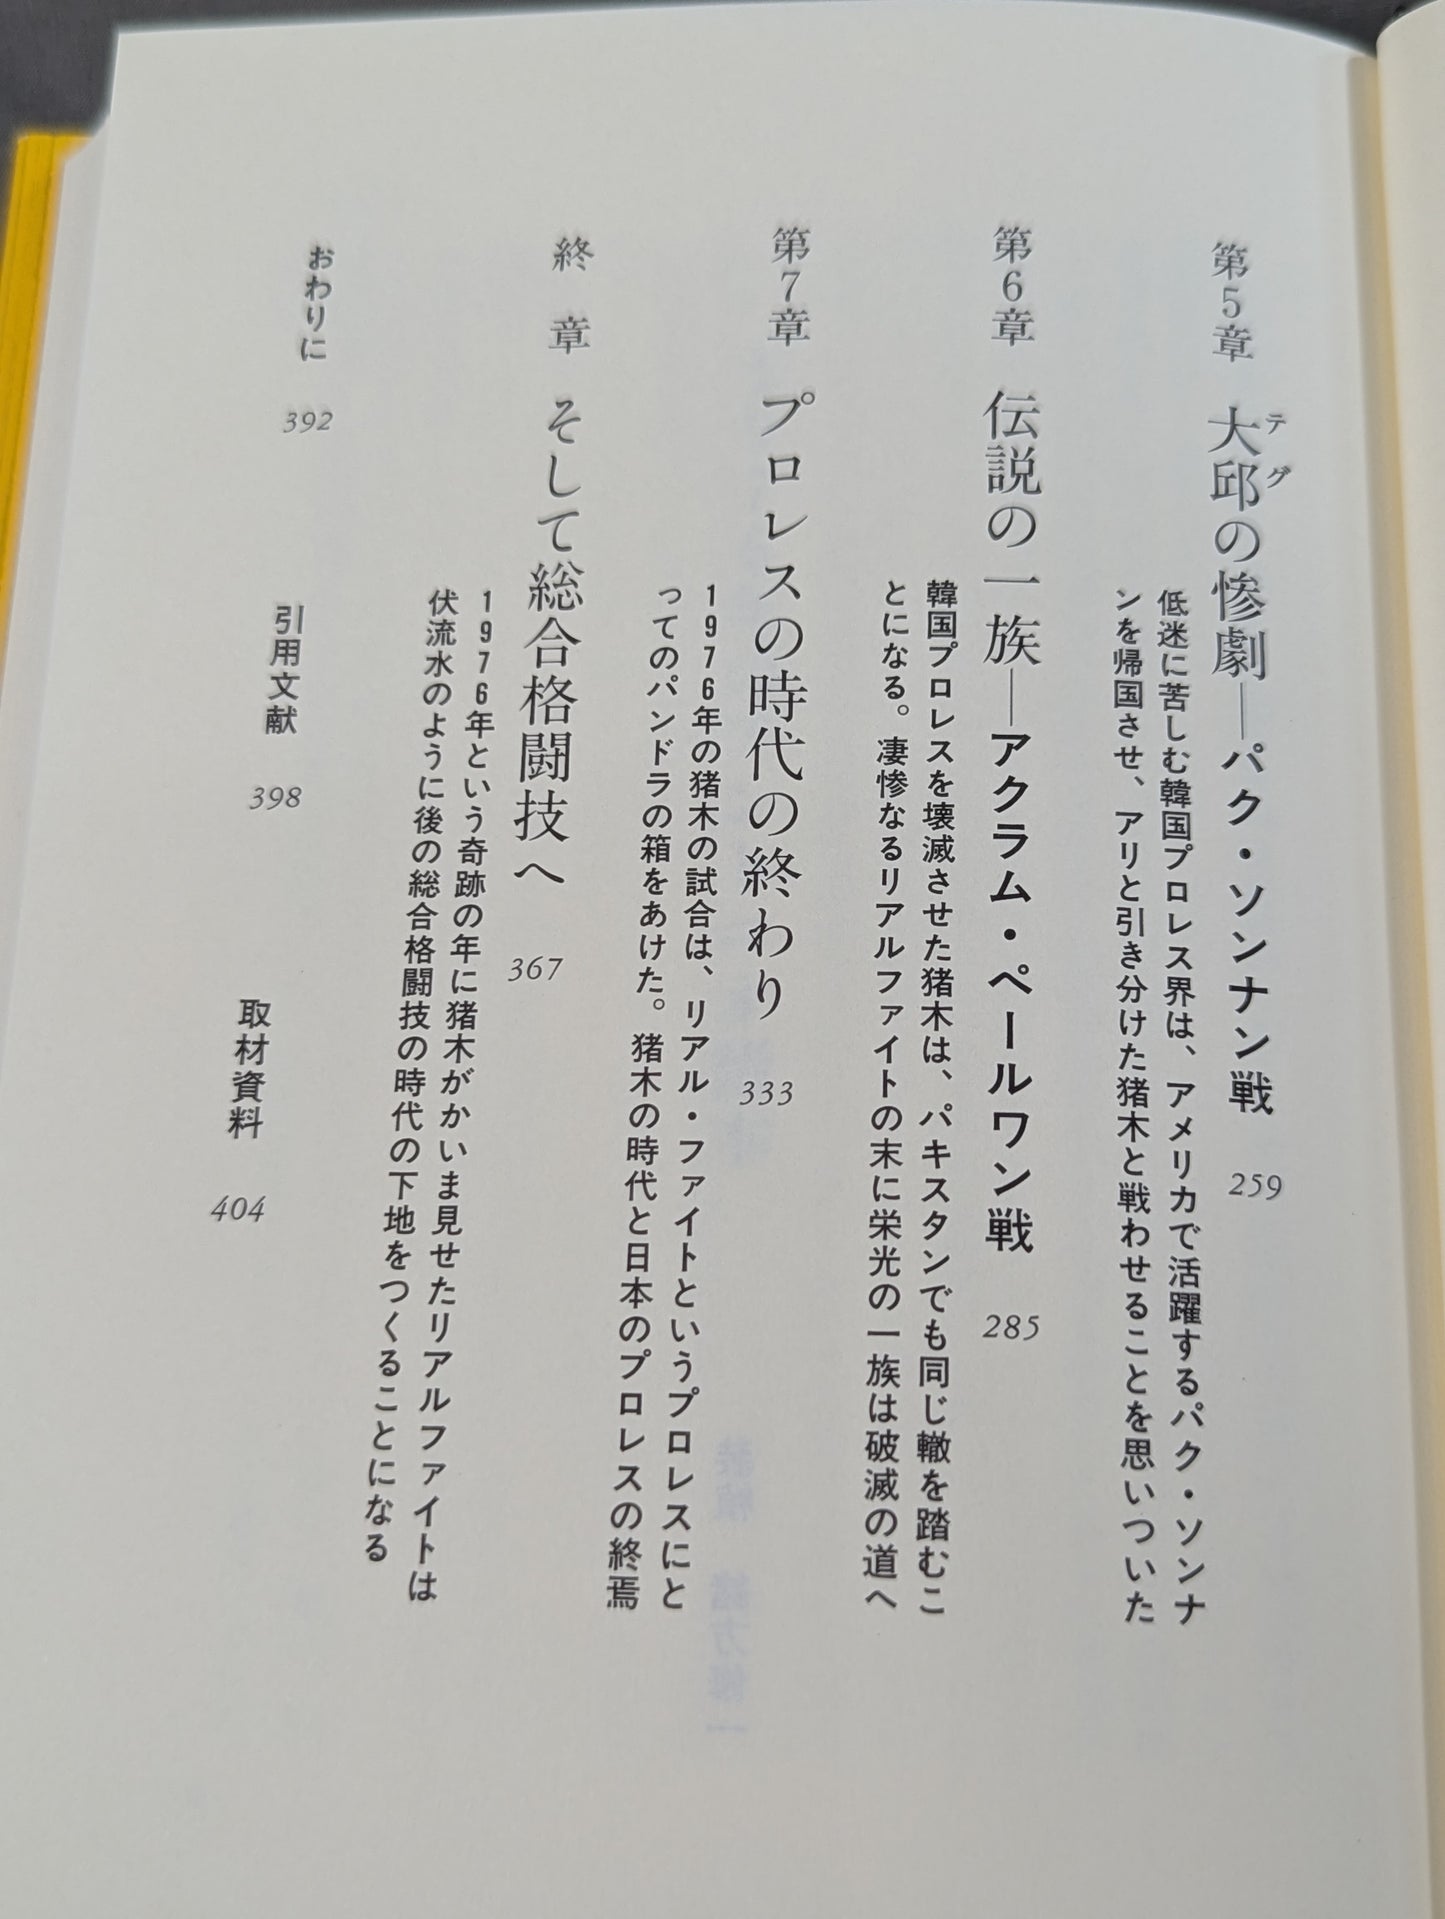 第5章 大邱の惨劇──パク・ソンナン戦 259
テグ
低迷に苦しむ韓国プロレス界は、アメリカで活躍するパク・ソンナ
ンを帰国させ、アリと引き分けた猪木と戦わせることを思いついた
第6章 伝説の一族──アクラム・ペールワン戦 285
韓国プロレスを壊滅させた猪木は、パキスタンでも同じ轍を踏むこ
とになる。凄惨なるリアルファイトの末に栄光の一族は破滅の道へ
第7章 プロレスの時代の終わり 333
1976年の猪木の試合は、リアル・ファイトというプロレスにと
ってのパンドラの箱をあけた。猪木の時代と日本のプロレスの終焉
終 章 そして総合格闘技へ 367
1976年という奇跡の年に猪木がかいま見せたリアルファイトは
伏流水のように後の総合格闘技の時代の下地をつくることになる
おわりに 392
引用文献 398
取材資料 404